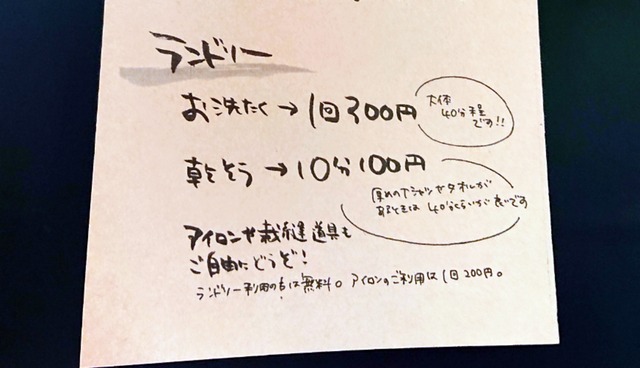 ランドリー
お洗たく→1回300円
大体
40分程
です!!
乾そう→10分100円
厚めのTシャツやタオルが
あるときは 40分くらいが良いです
アイロンや裁縫道具も
ご自由にどうぞ!
ランドリー利用の方は無料。アイロンのご利用は1回200円。